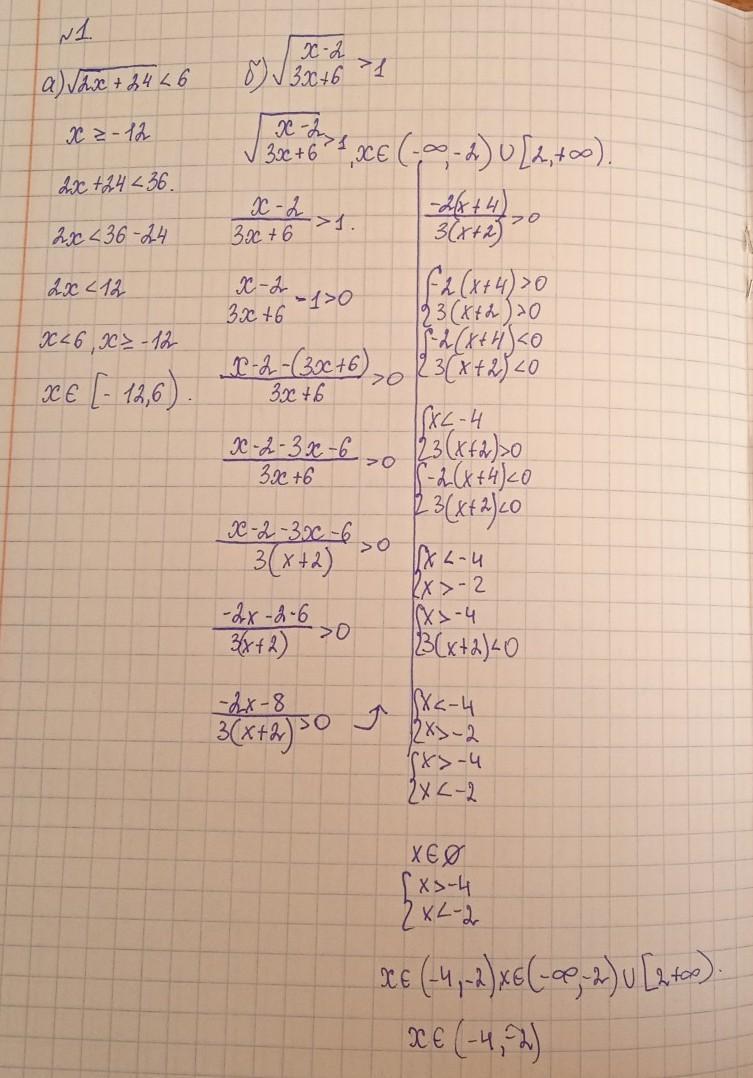 №1.
а) √(2x + 24) < 6
x ≥ -12
2x + 24 < 36.
2x < 36 - 24
2x < 12
x < 6, x ≥ -12
x ∈ [- 12, 6).
б) √((x - 2)/(3x + 6)) > 1
√((x - 2)/(3x + 6)) > 1, x ∈ (-∞, -2) ∪ [2, +∞).
(x - 2)/(3x + 6) > 1.
(x - 2)/(3x + 6) - 1 > 0
(x - 2 - (3x + 6))/(3x + 6) > 0
(x - 2 - 3x - 6)/(3x + 6) > 0
(x - 2 - 3x - 6)/(3(x + 2)) > 0
(-2x - 2 - 6)/(3(x + 2)) > 0
(-2x - 8)/(3(x + 2)) > 0
(-2(x + 4))/(3(x + 2)) > 0
{ -2(x + 4) > 0
{ 3(x + 2) > 0
{ -2(x + 4) < 0
{ 3(x + 2) < 0
{ x < -4
{ 3(x + 2) > 0
{ -2(x + 4) < 0
{ 3(x + 2) < 0
{ x < -4
{ x > -2
{ x > -4
{ 3(x + 2) < 0
{ x < -4
{ x > -2
{ x > -4
{ x < -2
x ∈ ∅
{ x > -4
{ x < -2
x ∈ (-4, -2) x ∈ (-∞, -2) ∪ [2 +∞).
x ∈ (-4, -2)